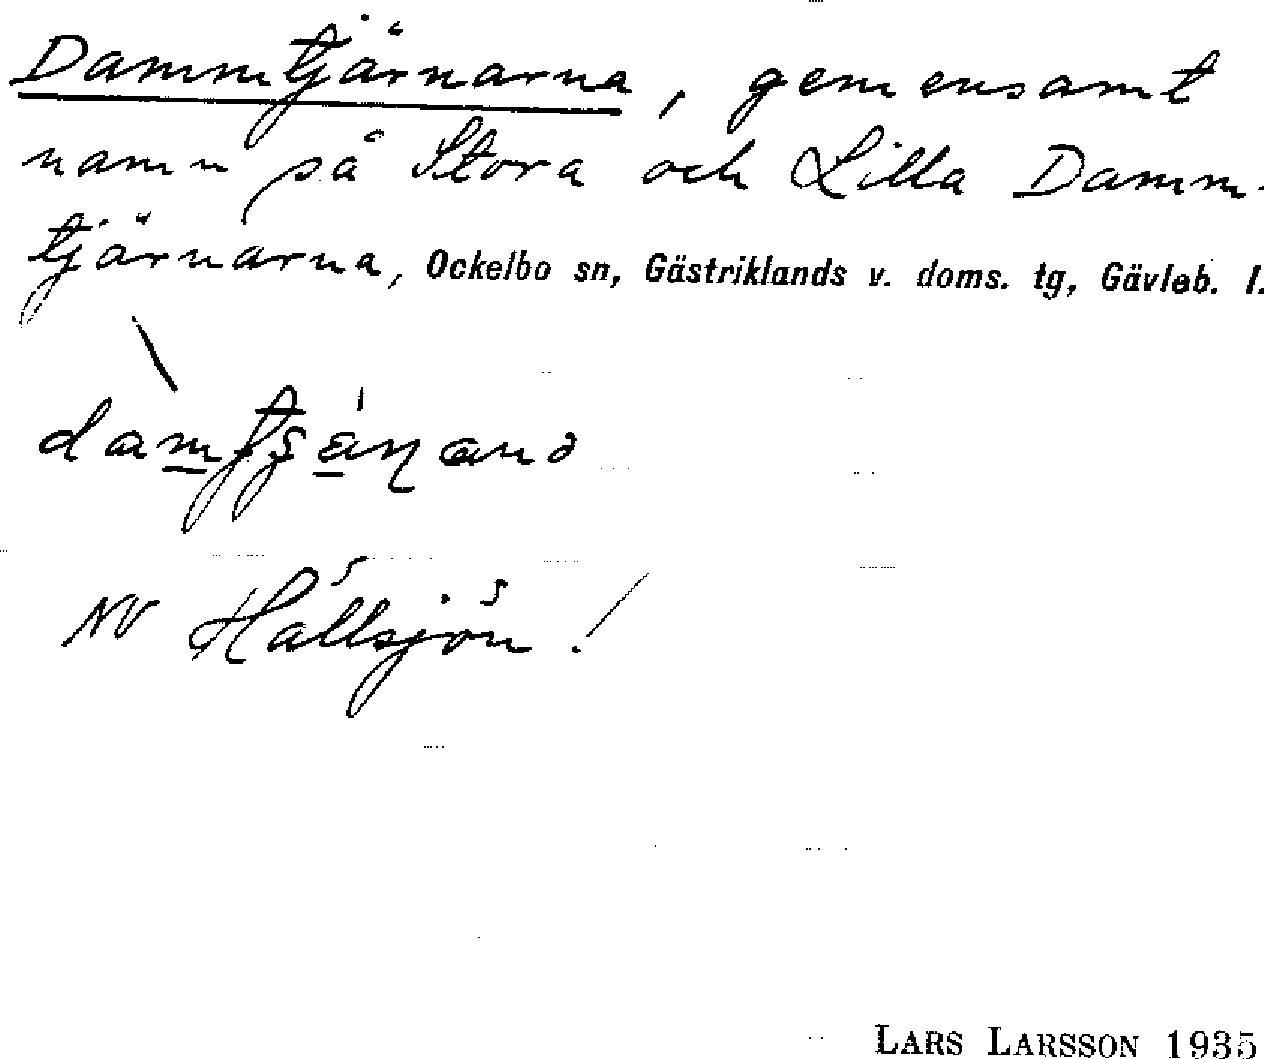 Dammtjärnarna, gemensamt
namn på Stora och Lilla Damm-
tjärnarna, Ockelbo sn, Gästriklands v. doms. tg, Gävleb. l.
NV Hållsjön!
LARS LARSSON 1935